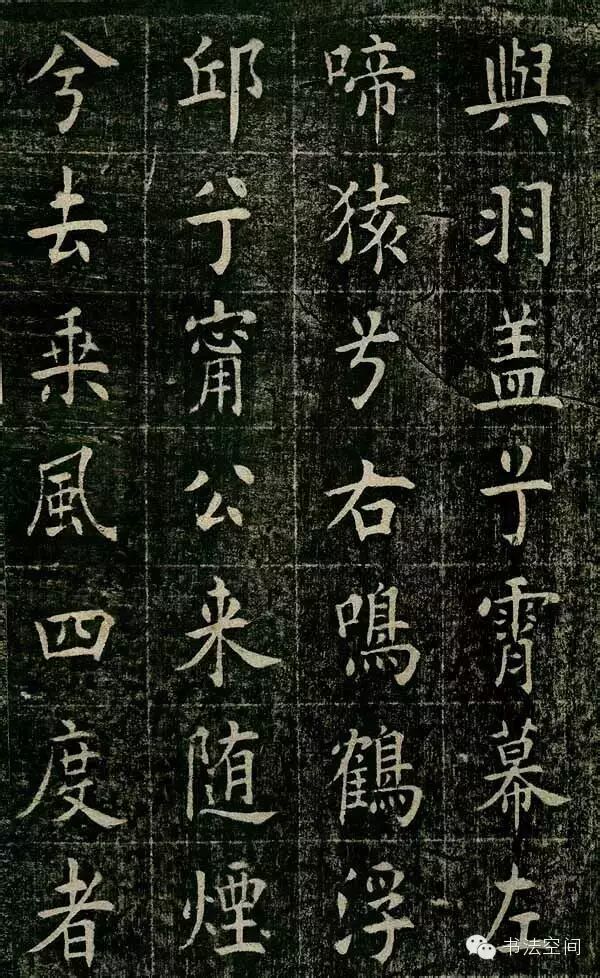 與羽盖兮霄幕左
啼猿兮右鳴鶴浮
邱兮甯公来随煙
兮去乗風四度者
书法空间